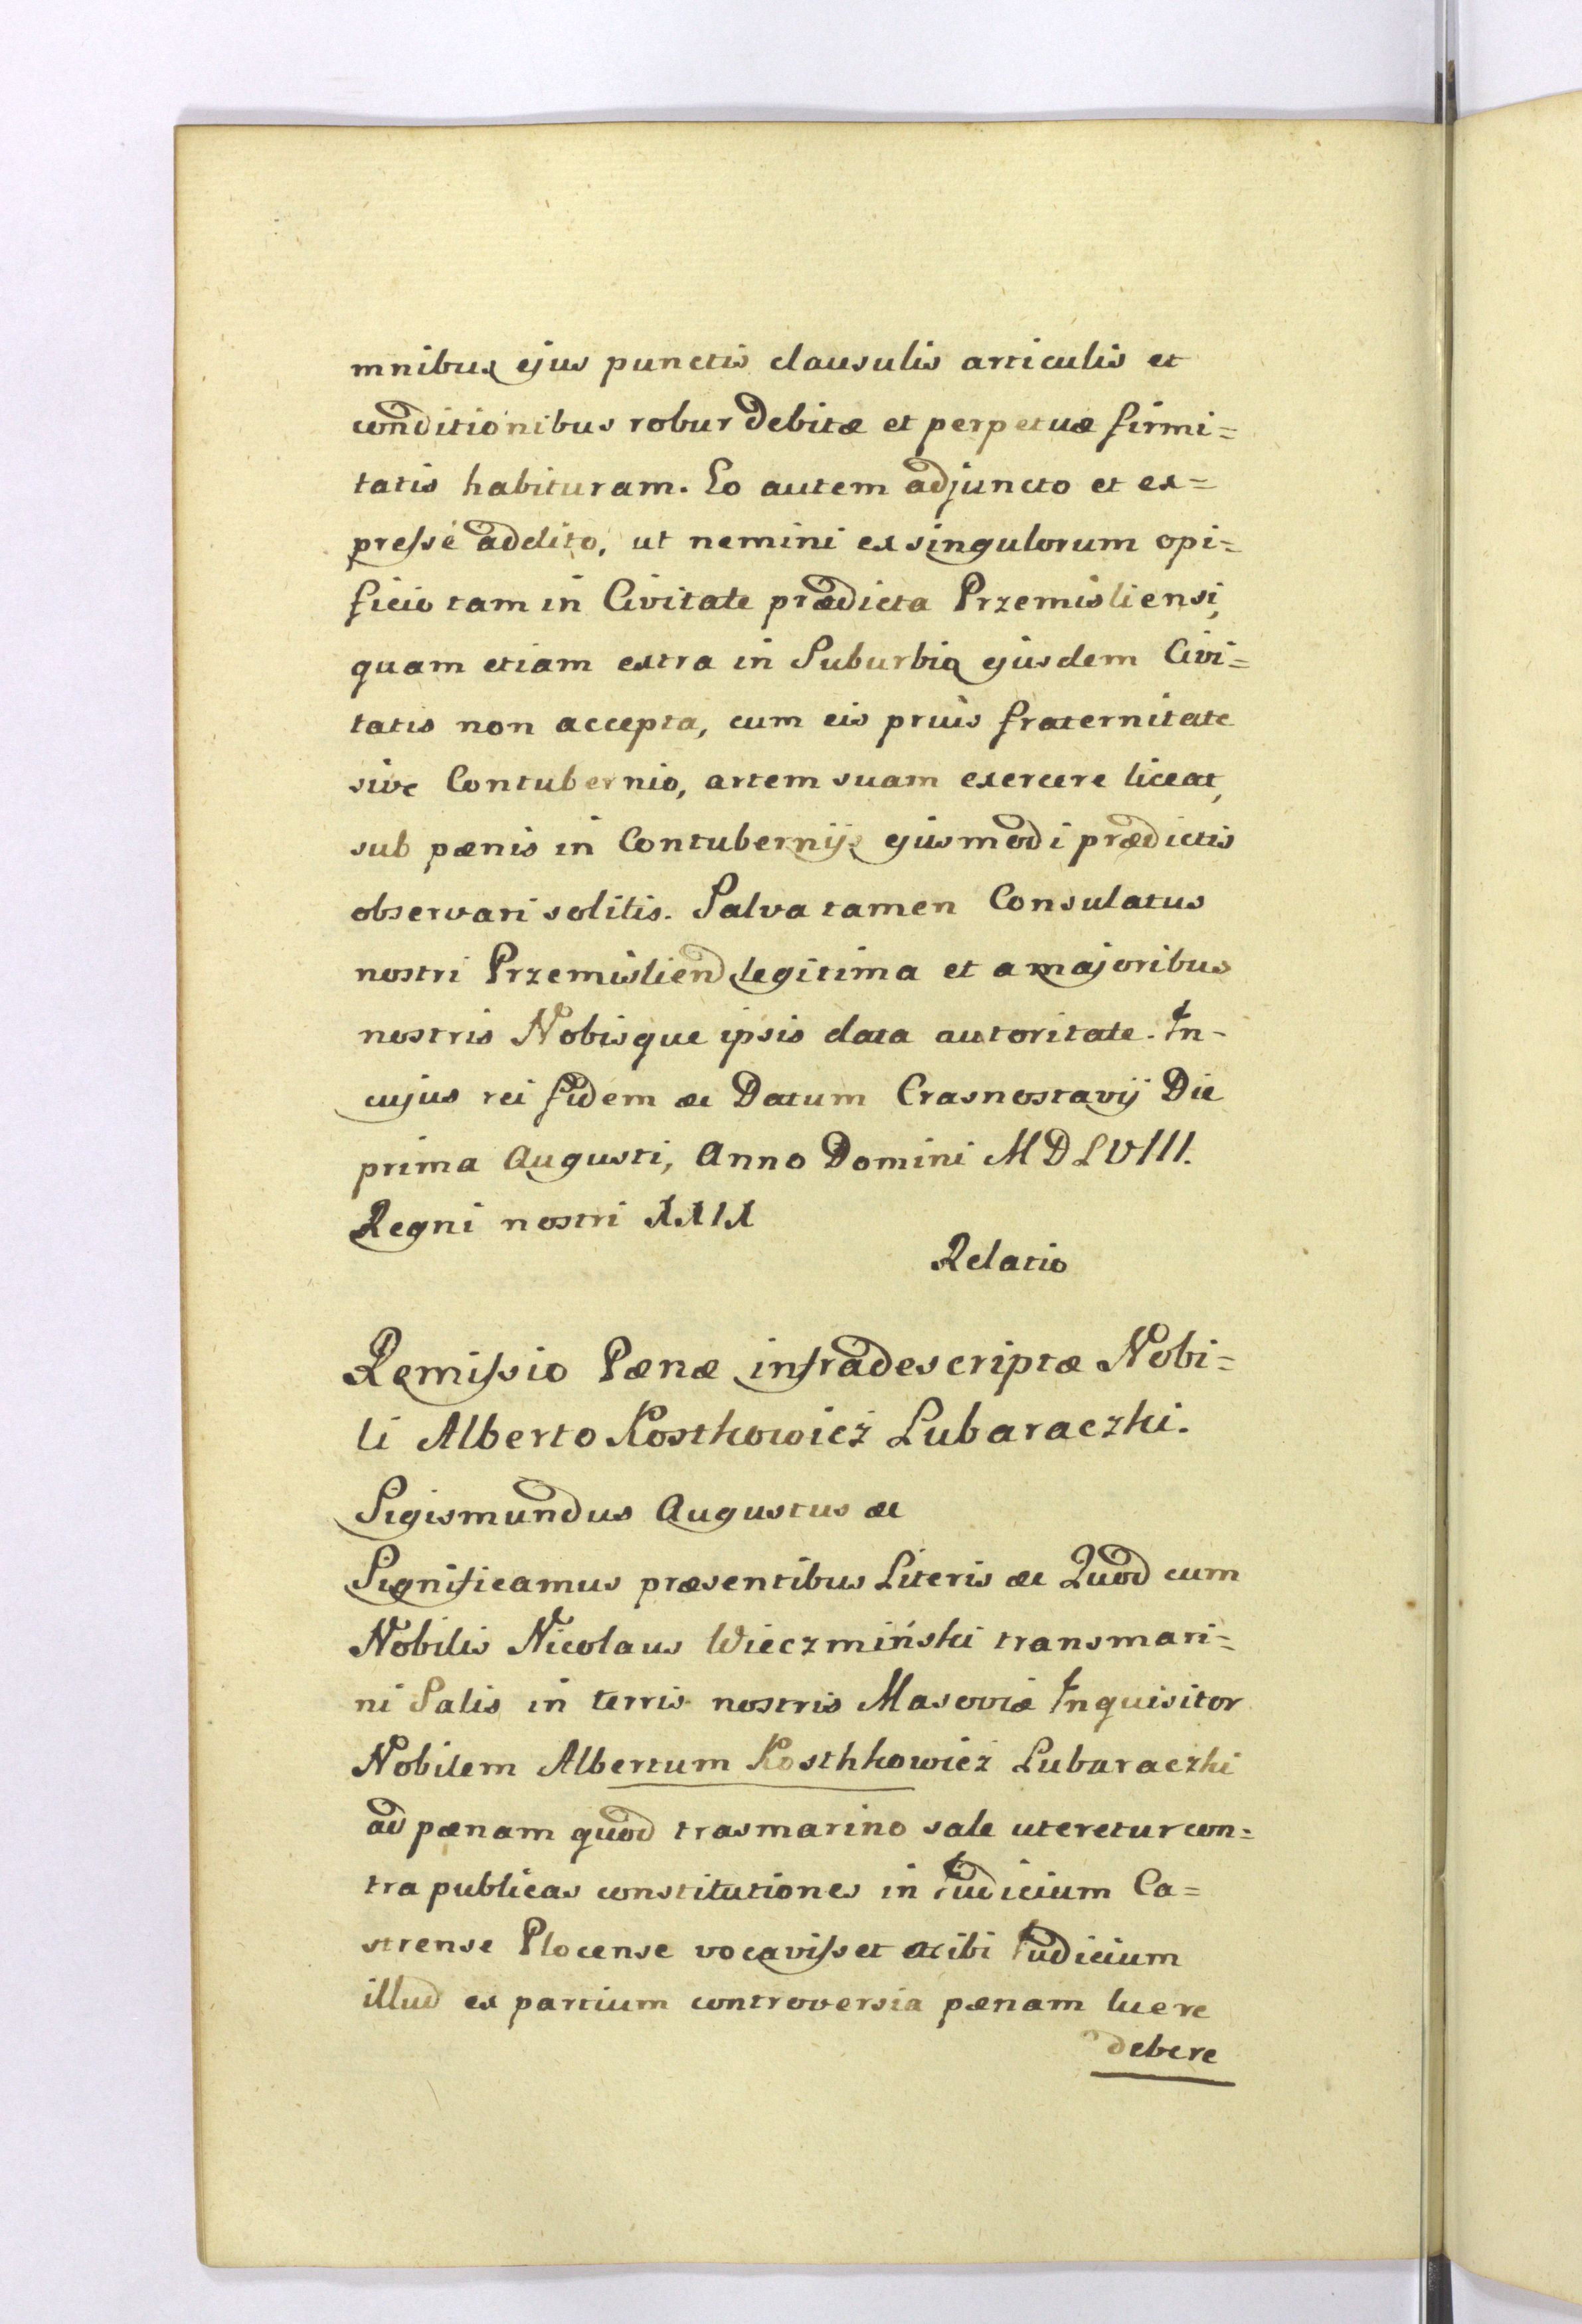 mnibus ejus punctis clausulis articulis et
conditionibus robur debitæ et perpetuæ firmi=
tatis habituram. Eo autem adjuncto et ex=
presse addito, ut nemini ex singulorum opi=
ficio tam in Civitate prædicta Przemisliensi,
quam etiam extra in Suburbia ejusdem Civi=
tatis non accepta, cum eis prius fraternitate
sive Contubernio, artem suam exercere liceat,
sub pænis in Contubernijs ejusmodi prædictis
observari solitis. Salva tamen Consulatus
nostri Przemislien legitima et a majoribus
nostris Nobisque ipsis data autoritate. In-
cujus rei fidem &c Datum Crasnostavij Die
prima Augusti, Anno Domini MDLVIII.
Regni nostri XXIX
Relatio
Remissio Pænæ infradescriptæ Nobi=
li Alberto Kosthowicz Lubaraczki.
Sigismundus Augustus &c
Significamus præsentibus Literis &c Quod cum
Nobilis Nicolaus Wieczmiński transmari=
ni Salis in terris nostris Masoviæ Inquisitor
Nobilem Albertum Kosthkowicz Lubaraczki
ad pænam quod trasmarino sale uteretur con=
tra publicas constitutiones in Iudicium Ca=
strense Plocense vocavisset et ibi Iudicium
illud ex partium controversia pænam luere
debere